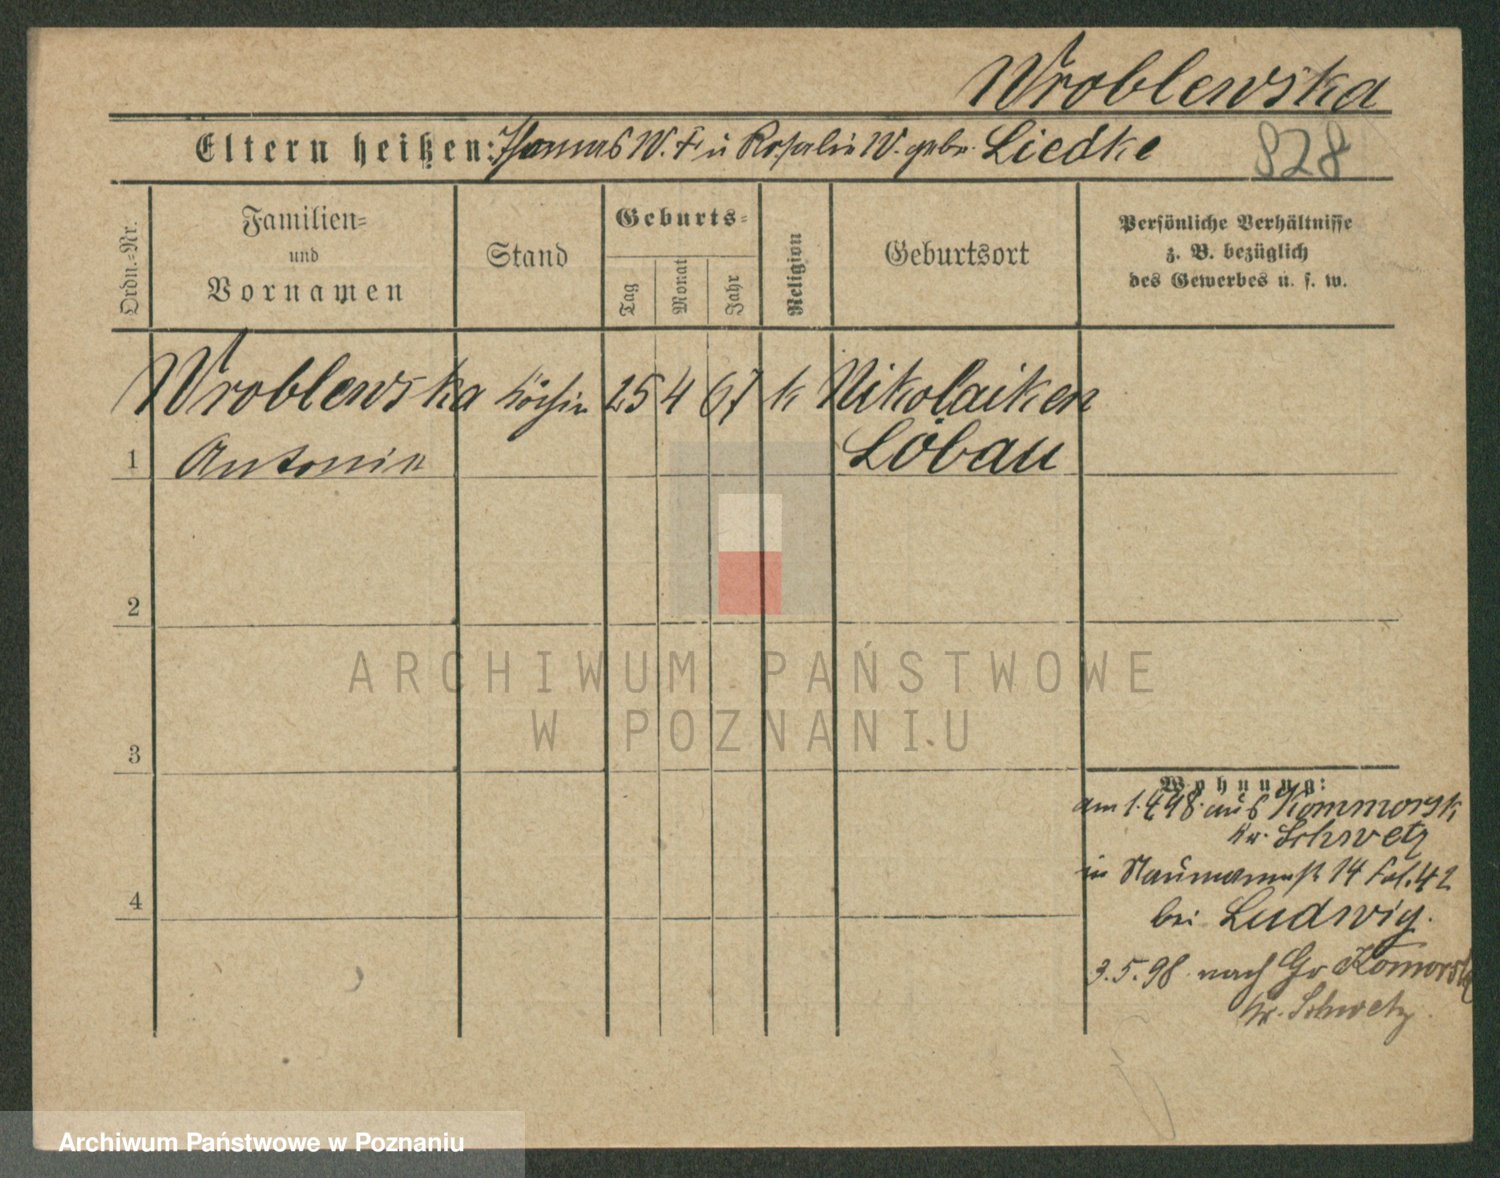 Wroblewska
Eltern heißen: Thomas W. † u Rosalie W. gebr. Liedke 828
Ordn.=Nr.
Familien=
und
Vornamen
Stand
Geburts=
Tag
Monat
Jahr
Religion
Geburtsort
Persönliche Verhältnisse
z. B. bezüglich
des Gewerbes u. s. w.
Wroblewska Köchin 25 4 67 k Nikolaiken
1 Antonie Löbau
2
ARCHIWUM PAŃSTWOWE
W POZNANIU
3
Wohnung:
am 1.4.98. aus Kommorsk
Kr. Schwetz
in Naumannst 14 Fol. 42
4
bei Ludwig.
3.5.98 nach Gr Komorsk
Kr. Schwetz.
Archiwum Państwowe w Poznaniu